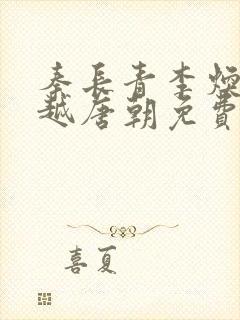 秦长青李煥
越唐朝免費
喜夏